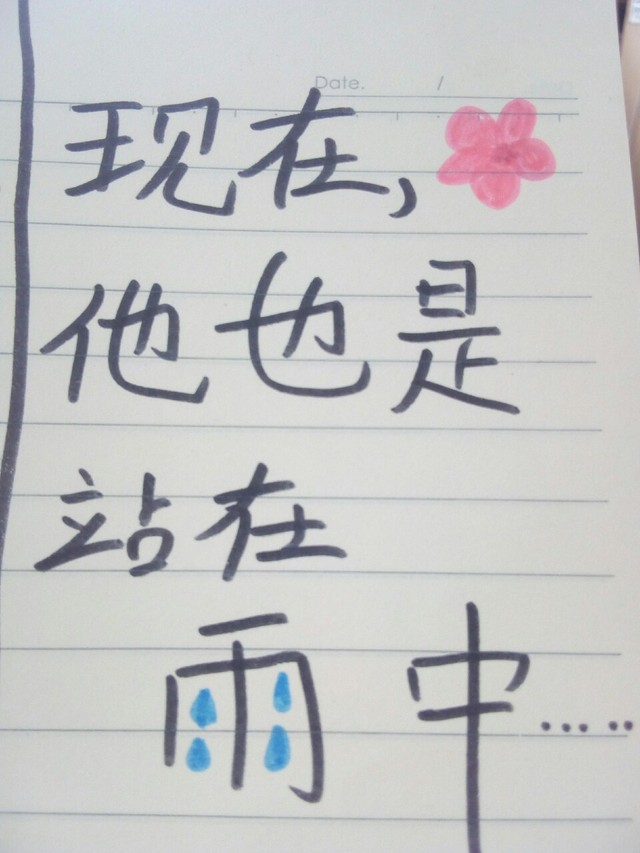 Date. /
现在,
他也是
站在
雨中.....